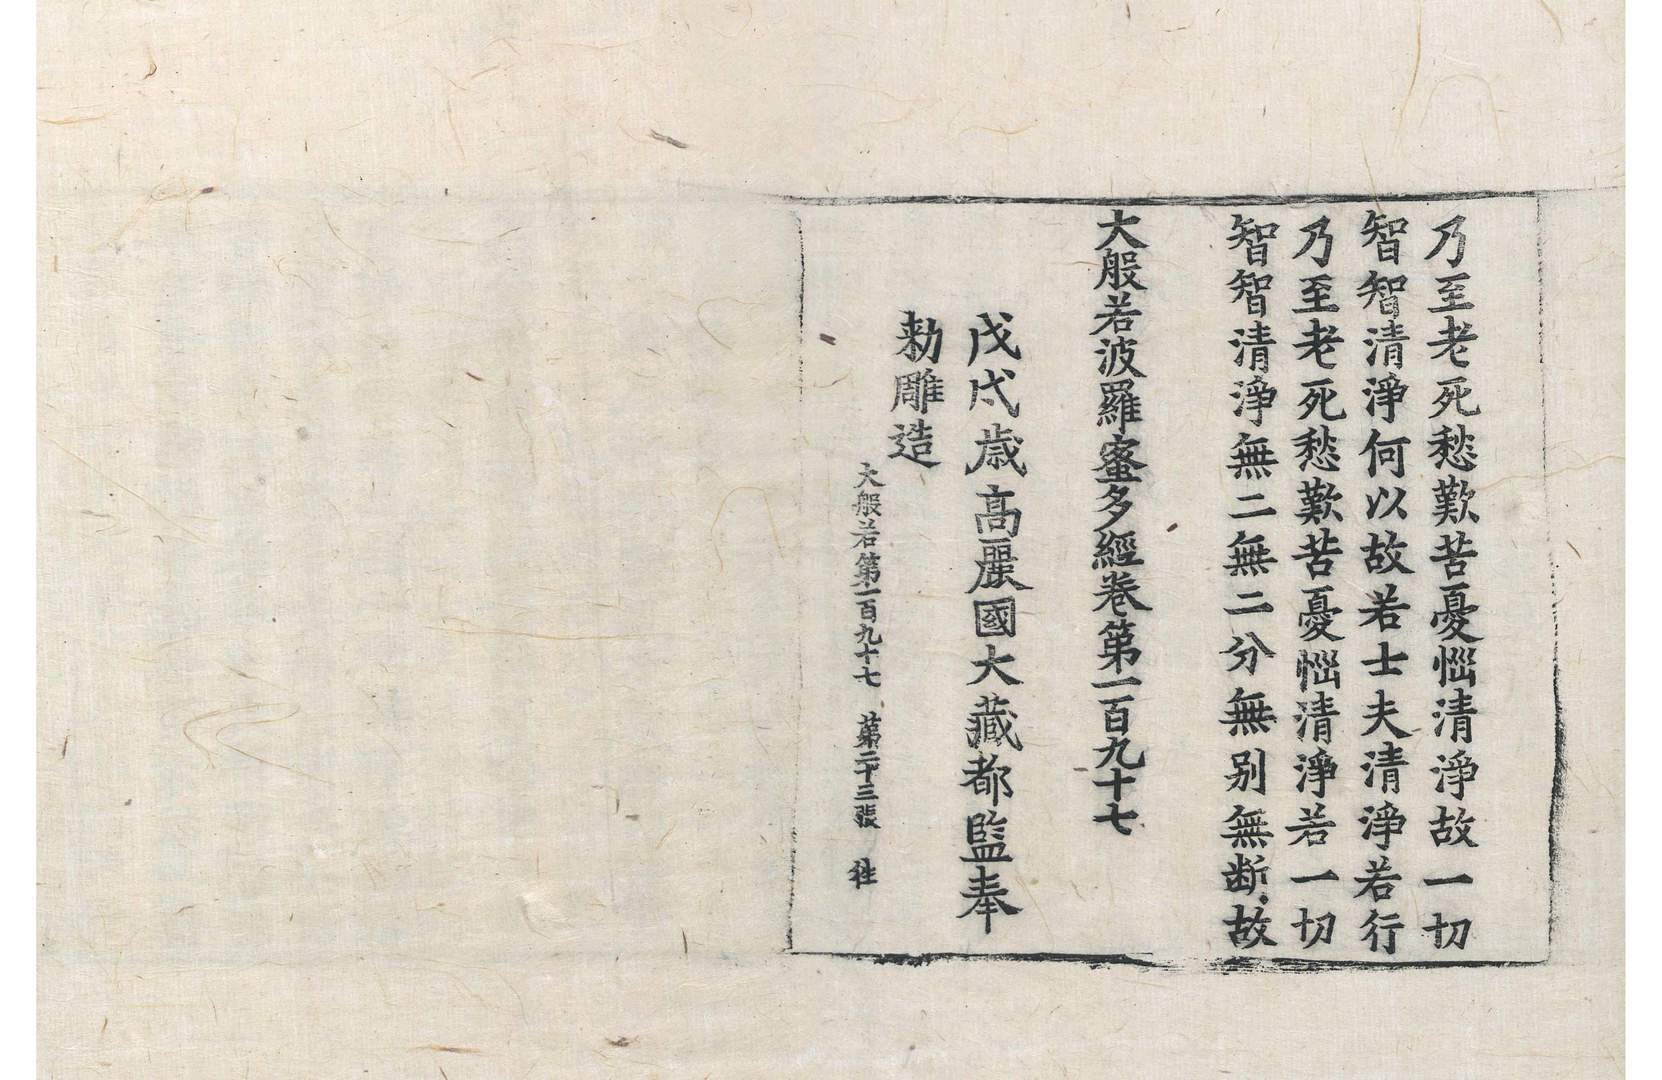 乃至老死愁歎苦憂惱清淨故一切
智智清淨何以故若士夫清淨若行
乃至老死愁歎苦憂惱清淨若一切
智智清淨無二無二分無別無断故
大般若波羅蜜多經卷第一百九十七
戊戌歳高麗國大藏都監奉
勅雕造
大般若第一百九十七 第二十三張